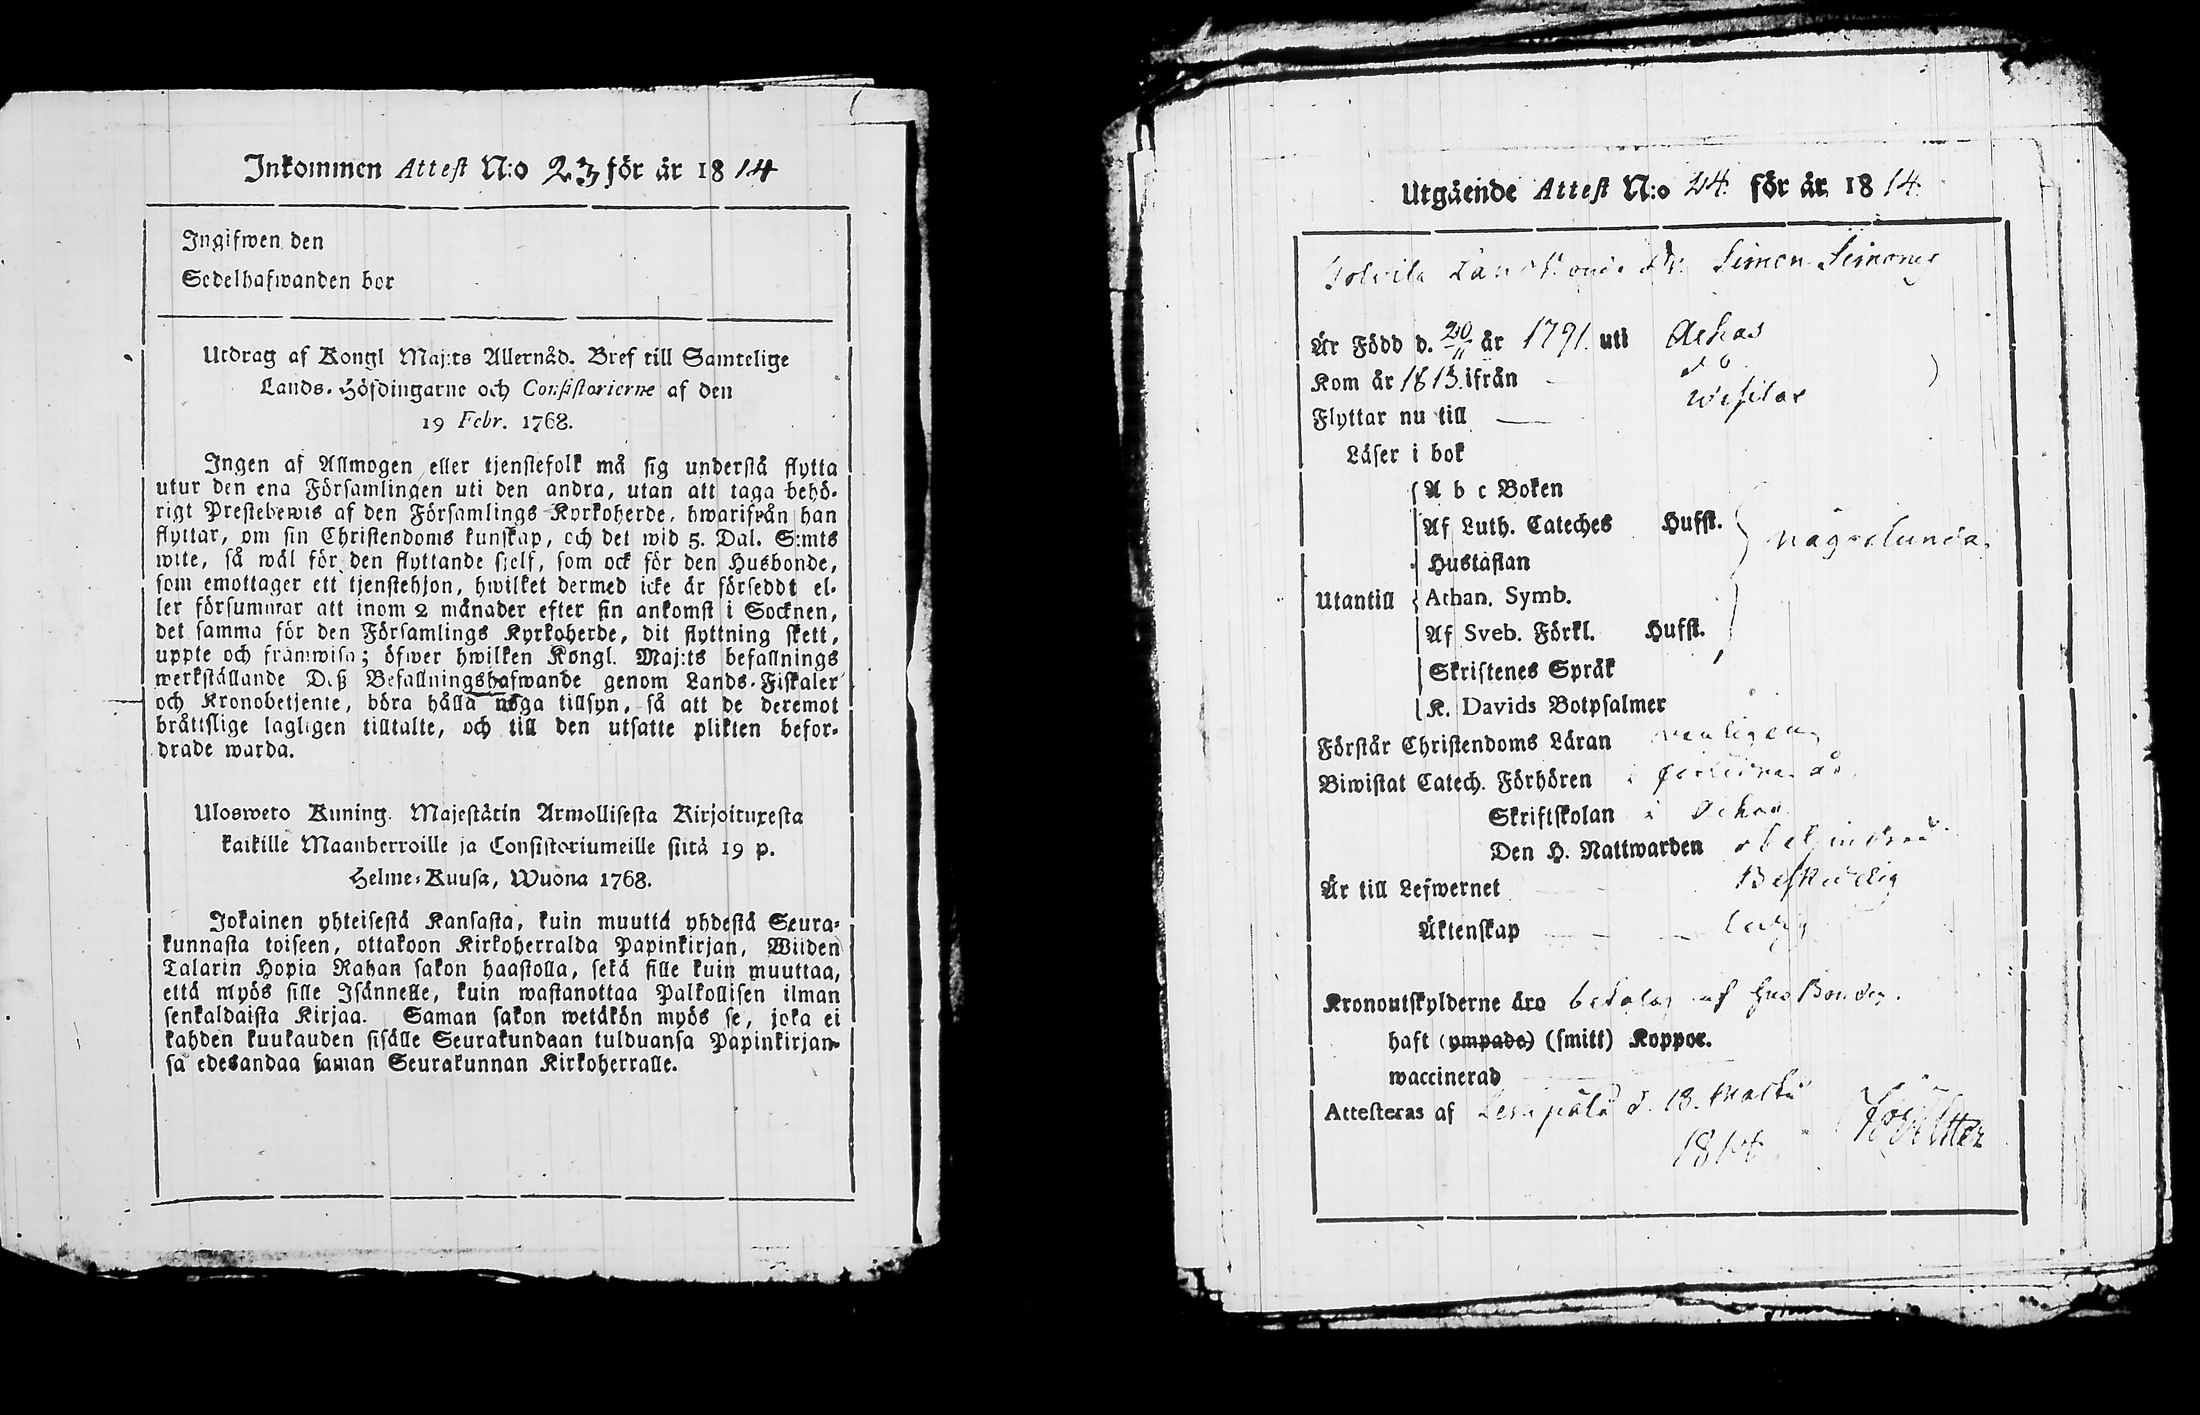 Inkommen Attest N:o 23 för år 1814
Ingifwen den
Sedelhafwanden bor
Utdrag af Kongl Maj:ts Allernåd. Bref till Samtelige
Lands-Höfdingarne och Consistorierne af den
19 Febr. 1768.
Ingen af Allmogen eller tjenstefolk må sig understå flytta
utur den ena Församlingen uti den andra, utan att taga behö-
rigt Prestebewis af den Församlings Kyrkoherde, hwarifrån han
flyttar, om sin Christendoms kunskap, och det wid 5. Dal. S:mts
wite, så wäl för den flyttande sjelf, som ock för den Husbonde,
som emottager ett tjenstehjon, hwilket dermed icke är förseddt el-
ler försummar att inom 2 månader efter sin ankomst i Socknen,
det samma för den Församlings Kyrkoherde, dit flyttning skett,
uppte och framwisa; öfwer hwilken Kongl. Maj:ts befallnings
werkställande Deß Befallningshafwande genom Lands-Fiskaler
och Kronobetjente, böra hålla noga tillsyn, så att de deremot
bråtislige lagligen tilltalte, och till den utsatte plikten befor-
drade warda.
Ulosweto Kuning. Majestätin Armollisesta Kirjoituxesta
kaikille Maanherroille ja Consistoriumeille siitä 19 p.
Helme-Kuusa, Wuona 1768.
Jokainen yhteisestä Kansasta, kuin muuttä yhdestä Seura-
kunnasta toiseen, ottakoon Kirkoherralda Papinkirjan, Wiiden
Talarin Hopia Rahan sakon haastolla, sekä sille kuin muuttaa,
että myös sille Isännelle, kuin wastanottaa Palkollisen ilman
senkaldaista Kirjaa. Saman sakon wetäkön myös se, joka ei
kahden kuukauden sisälle Seurakundaan tulduansa Papinkirjan-
sa edesandaa saman Seurakunnan Kirkoherralle.
Utgåenide Attest N:o 24. för år 1814.
Simon Simons
Är Född d. 20/11 år 1791. uti Ackas
Kom år 1813. ifrån do
Flyttar nu till Wesilax
Läser i bok
A b c Boken
Af Luth. Cateches Hufst.
Hustaflan
Utantill Athan. Symb.
Af Sveb. Förkl. Hufst.
Skriftenes Språk
K. Davids Botpsalmer
Förstår Christendoms Läran
Biwistat Catech. Förhören i år
Skriftskolan i Ackas
Den H. Nattwarden obehindrad
Är till Lefwernet Beskedelig
Äktenskap ledig
Kronoutskylderne äro betalas af Husbonden.
haft (ympade) (smitt) Koppor.
waccinerad
Attesteras af Lempälä d. 18. Martii
1814